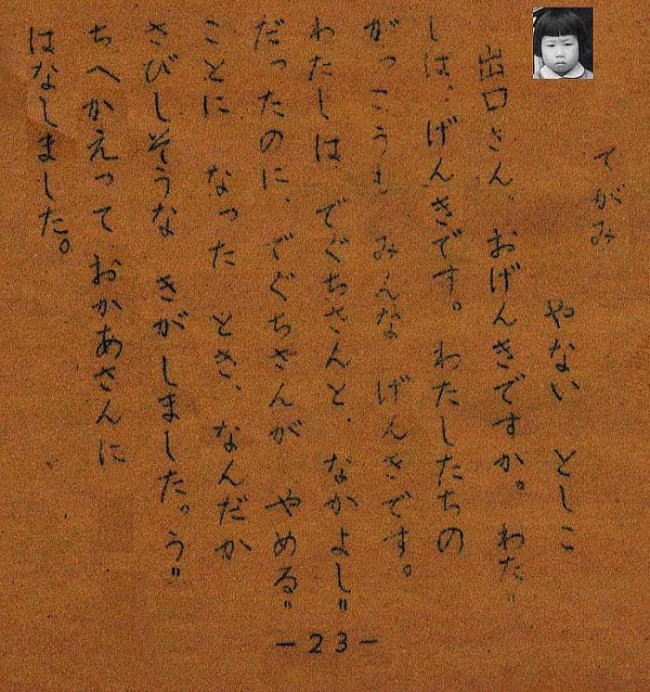 てがみ
やない としこ
出口さん、おげんきですか。わた〃
しは、げんきです。わたしたちの
がっこうも みんな げんきです。
わたしは、でぐちさんと、なかよし〃
だったのに、でぐちさんが やめる〃
ことに なった とき、なんだか
さびしそうな きがしました。う〃
ちへかえって おかあさんに
はなしました。
－23－